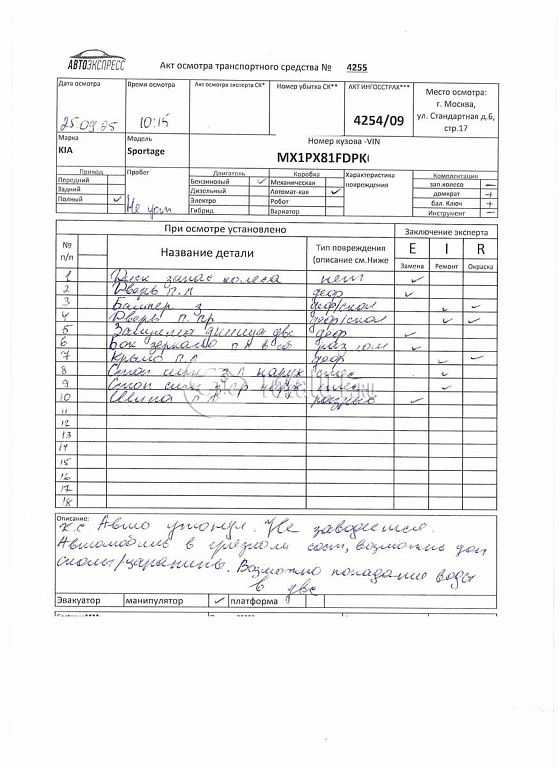 АВТОЭКСПРЕСС
Акт осмотра транспортного средства № 4255
Дата осмотра
Время осмотра
Акт осмотра эксперта СК*
Номер убытка СК**
АКТ ИНГОССТРАХ***
Место осмотра:
г. Москва,
ул. Стандартная д.6,
стр.17
25.09.25
10:15
4254/09
Марка
KIA
Модель
Sportage
Номер кузова -VIN
MX1PX81FDPK
Привод
Передний
Задний
Полный
Пробег
Не уст
Двигатель
Бензиновый
Дизельный
Электро
Гибрид
Коробка
Механическая
Автомат-кая
Робот
Вариатор
Характеристика
повреждения
Комплектация
зап.колесо –
домкрат +
бал. Ключ +
Инструмент –
При осмотре установлено
Заключение эксперта
№
п/п
Название детали
Тип повреждения
(описание см.Ниже
E I R
Замена Ремонт Окраска
1 Диск запас колеса нет
2 Дверь п.л деф
3 Бампер з деф/скол
4 Дверь п.пр деф/скол
5 Защита днища двс деф
6 Бок зеркало п л в сб
7 Крыло п.л деф
8 Стоп сигн з л наруж
9 Стоп сигн з пр наруж
10 Шина п л разрыв
11
12
13
14
15
16
17
18
Описание:
К.с Авто утонул. Не заводится.
Автомобиль в грязном сост, возможно доп
сколы/царапины. Возможно попадание воды
в двс
Эвакуатор манипулятор платформа